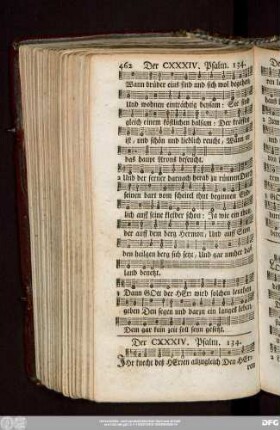 462 Der CXXXIV. Psalm. 134.
Wann brüder eins sind und sich wol begehen
Und wohnen einträchtig beysam: Sie sind
gleich einem köstlichen balsam: Der kräfftig
ist, und schön und lieblich reucht, Wann er
das haupt Arons befeucht.
2 Und der ferner darnach herab zu
seinen bart vom scheitel ihm beginnen
lich auff seine kleider schon: Ja wie ein thau
der auff dem berg Hermon, Und auff Sion
den heilgen berg sich setzt, Und gar umher das
land benetzt.
3 Dann GOtt der HErr wird solchen leuthen
geben Den segen und darzu ein langes leben
Dem gar kein zeit ziel seyn gesetzt.
Der CXXXIV. Psalm. 134.
IHr knecht deß HErren allzugleich Den HEr-
ren